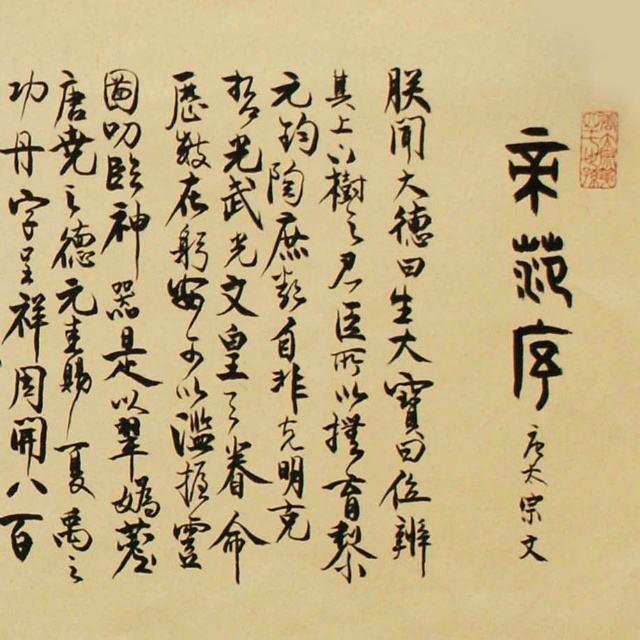 帝範序
唐太宗文
朕聞大德曰生大寶曰位辨
其上下樹之君臣所以撫育黎
元均陶庶類自非克明克
哲允武允文皇天眷命
歷數在躬安可以濫握靈
圖叨臨神器是以翠媯薦
唐堯之德元圭賜夏禹之
功丹字呈祥周開八百